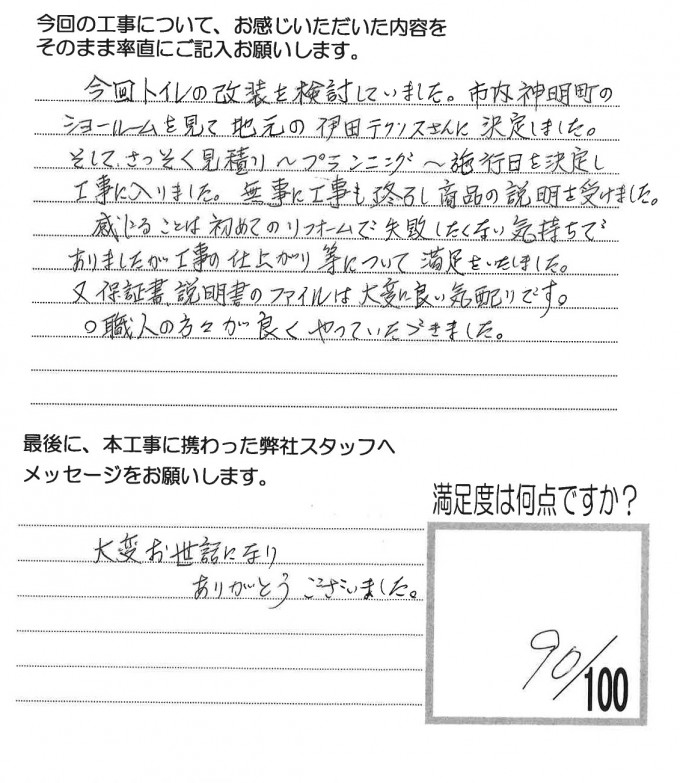 今回の工事について、お感じいただいた内容を
そのまま率直にご記入お願いします。
今回トイレの改装を検討していました。市内神明町の
ショールームを見て地元の伊田テクノスさんに決定しました。
そして、さっそく見積り～プランニング～施行日を決定し
工事に入りました。無事に工事も終了し商品の説明を受けました。
感じることは初めてのリフォームで失敗したくない気持ちで
ありましたが工事の仕上がり等について満足をいたしました。
又保証書、説明書のファイルは大変に良い気配りです。
○職人の方々が良くやっていただきました。
最後に、本工事に携わった弊社スタッフへ
メッセージをお願いします。
満足度は何点ですか？
大変お世話になり
ありがとうございました。
90/100